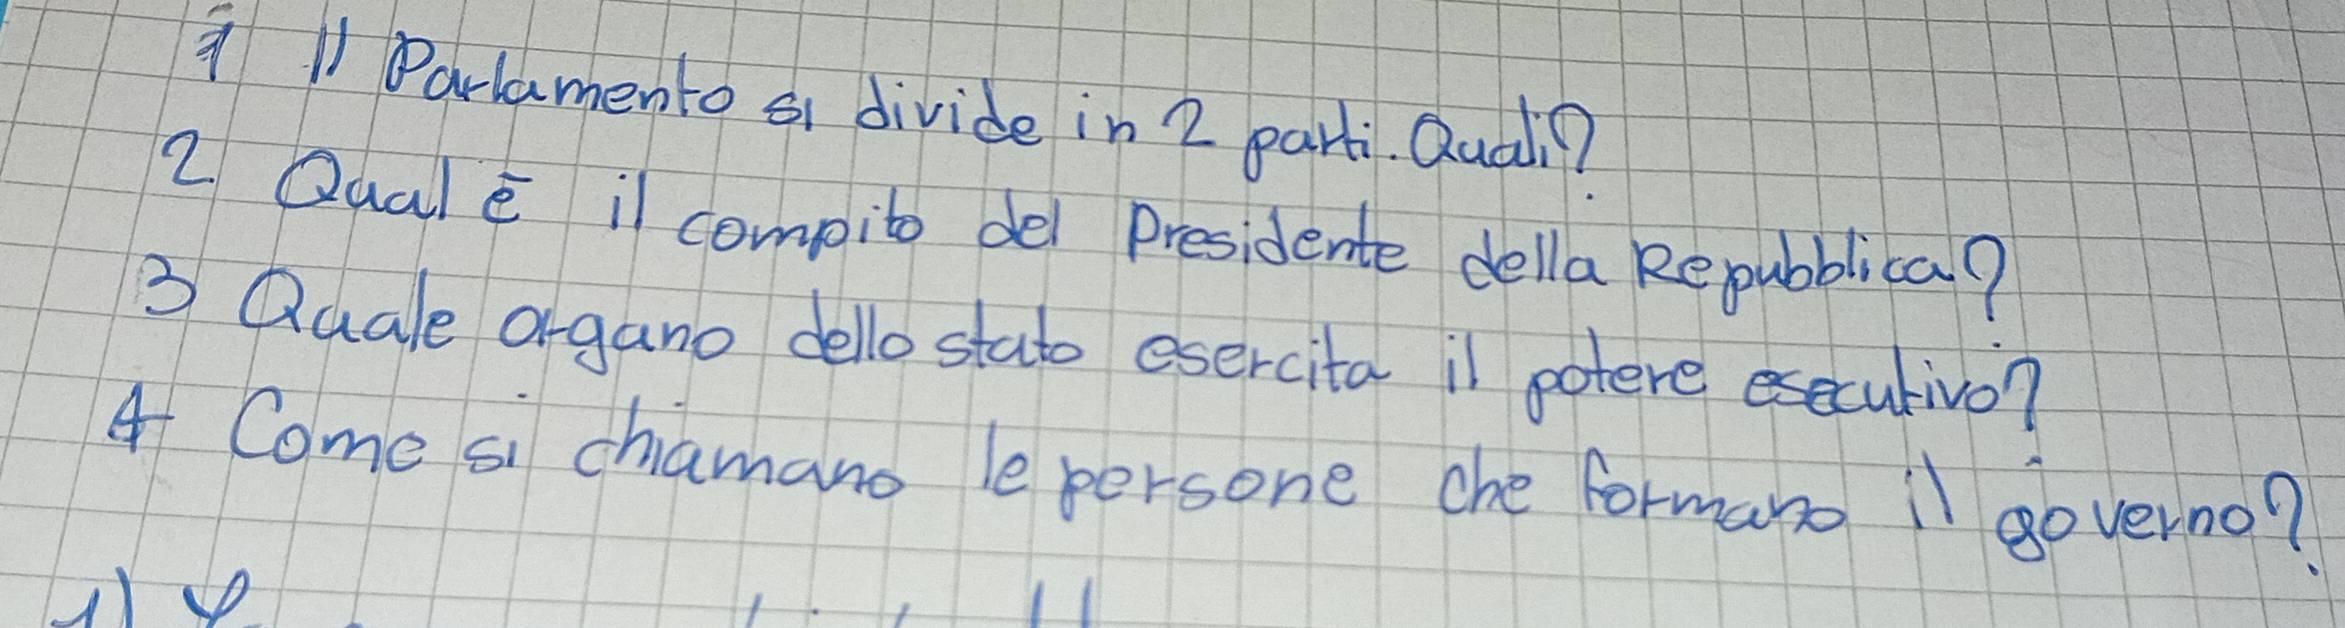 1 Il Parlamento si divide in 2 parti. Quali?
2 Qual è il compito del Presidente della Repubblica?
3 Quale organo dello stato esercita il potere esecutivo?
4 Come si chiamano le persone che formano il governo?
1)